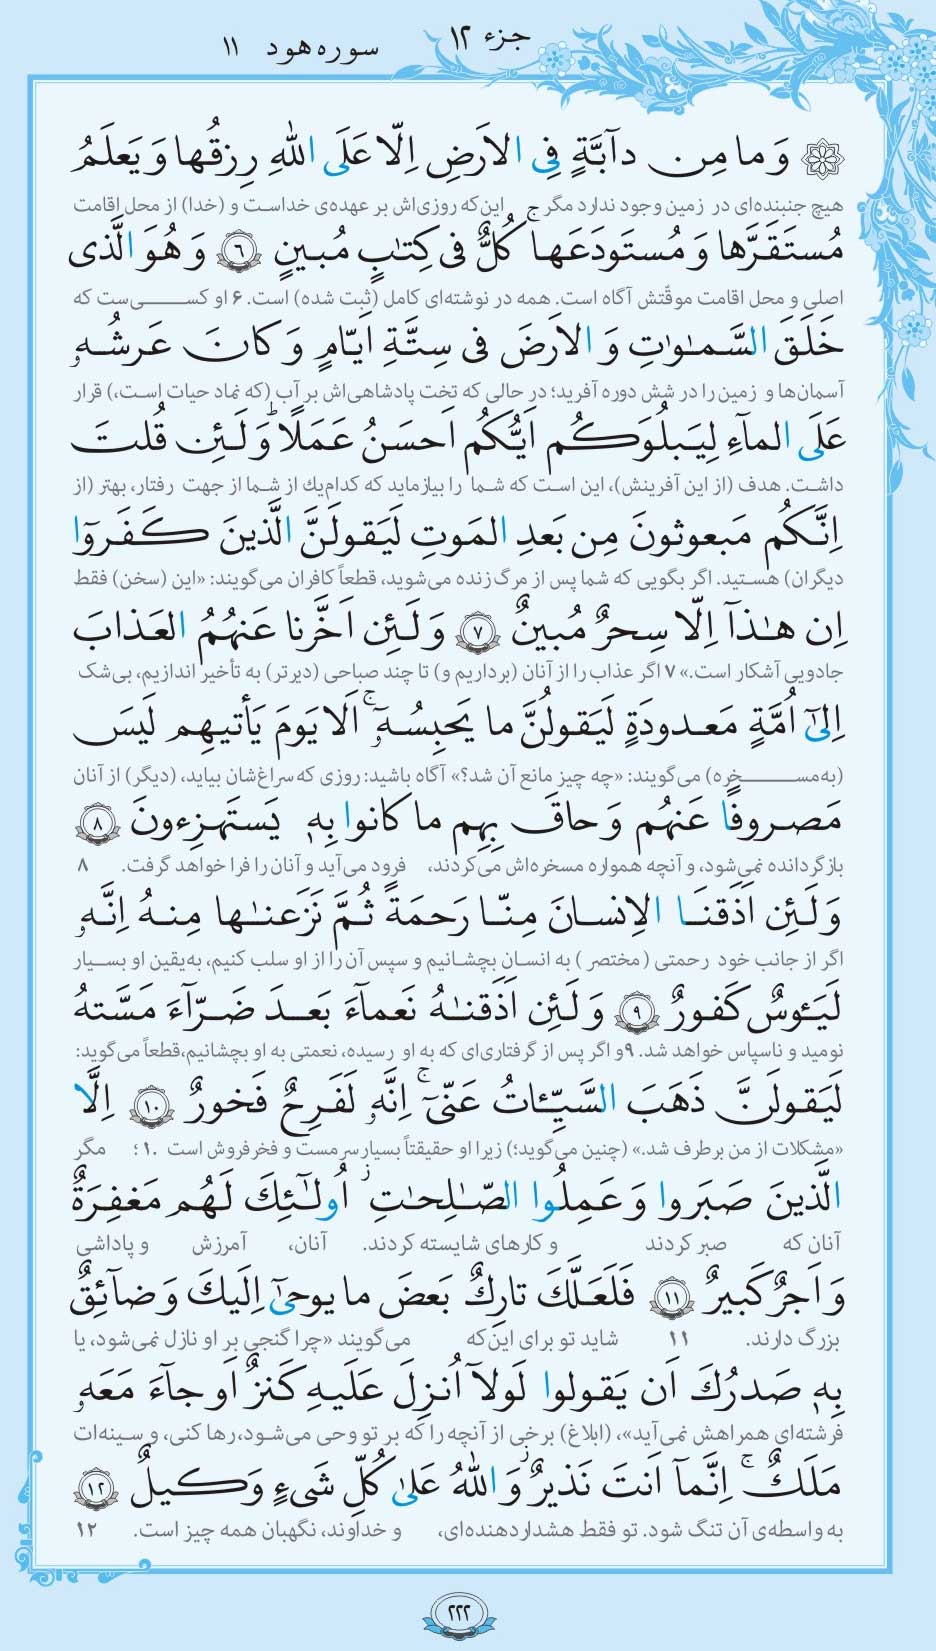 جزء ۱۲ سوره هود ۱۱
وَ ما مِن دآبَّةٍ فِی الاَرضِ اِلّا عَلَی اللهِ رِزقُها وَ یَعلَمُ
هیچ جنبنده‌ای در زمین وجود ندارد مگر این‌که روزی‌اش بر عهده‌ی خداست و (خدا) از محل اقامت
مُستَقَرَّها وَ مُستَودَعَها ۚ کُلٌّ فی کِتٰبٍ مُبینٍ ﴿۶﴾ وَ هُوَ الَّذی
اصلی و محل اقامت موقّتش آگاه است. همه در نوشته‌ای کامل (ثبت شده) است. ۶ او کسی‌ست که
خَلَقَ السَّمٰوٰتِ وَ الاَرضَ فی سِتَّةِ اَیّامٍ وَ کانَ عَرشُهٗ
آسمان‌ها و زمین را در شش دوره آفرید؛ در حالی که تخت پادشاهی‌اش بر آب (که نماد حیات است،) قرار
عَلَی المآءِ لِیَبلُوَکُم اَیُّکُم اَحسَنُ عَمَلًا ؕ وَ لَئِن قُلتَ
داشت. هدف (از این آفرینش)، این است که شما را بیازماید که کدام‌یك از شما از جهت رفتار، بهتر (از
اِنَّکُم مَبعوثونَ مِن بَعدِ المَوتِ لَیَقولَنَّ الَّذینَ کَفَروٓا
دیگران) هستید. اگر بگویی که شما پس از مرگ زنده می‌شوید، قطعاً کافران می‌گویند: «این (سخن) فقط
اِن هٰذآ اِلّا سِحرٌ مُبینٌ ﴿۷﴾ وَ لَئِن اَخَّرنا عَنهُمُ العَذابَ
جادویی آشکار است.» ۷ اگر عذاب را از آنان (برداریم و) تا چند صباحی (دیرتر) به تأخیر اندازیم، بی‌شک
اِلیٰٓ اُمَّةٍ مَعدودَةٍ لَیَقولُنَّ ما یَحبِسُهٗٓ ۚ اَلا یَومَ یَأتیهِم لَیسَ
(به‌مسخره) می‌گویند: «چه چیز مانع آن شد؟» آگاه باشید: روزی که سراغ‌شان بیاید، (دیگر) از آنان
مَصروفًا عَنهُم وَ حاقَ بِهِم ما کانوا بِهٖ یَستَهزِءونَ ﴿۸﴾
بازگردانده نمی‌شود، و آنچه همواره مسخره‌اش می‌کردند، فرود می‌آید و آنان را فرا خواهد گرفت. ۸
وَ لَئِن اَذَقنَا الاِنسانَ مِنّا رَحمَةً ثُمَّ نَزَعنٰها مِنهُ اِنَّهٗ
اگر از جانب خود رحمتی (مختصر) به انسان بچشانیم و سپس آن را از او سلب کنیم، به‌یقین او بسیار
لَیَئوسٌ کَفورٌ ﴿۹﴾ وَ لَئِن اَذَقنٰهُ نَعمآءَ بَعدَ ضَرّآءَ مَسَّتهُ
نومید و ناسپاس خواهد شد. ۹ و اگر پس از گرفتاری‌ای که به او رسیده، نعمتی به او بچشانیم، قطعاً می‌گوید:
لَیَقولَنَّ ذَهَبَ السَّیِّئاتُ عَنّیٓ ۚ اِنَّهٗ لَفَرِحٌ فَخورٌ ﴿۱۰﴾ اِلَّا
«مشکلات از من برطرف شد.» (چنین می‌گوید؛) زیرا او حقیقتاً بسیار سرمست و فخرفروش است ۱۰؛ مگر
الَّذینَ صَبَروا وَ عَمِلُوا الصّٰلِحٰتِ ؗ اُولٰٓئِکَ لَهُم مَغفِرَةٌ
آنان که صبر کردند و کارهای شایسته کردند. آنان، آمرزش و پاداشی
وَ اَجرٌ کَبیرٌ ﴿۱۱﴾ فَلَعَلَّکَ تارِکٌ بَعضَ ما یوحیٰٓ اِلَیکَ وَ ضآئِقٌ
بزرگ دارند. ۱۱ شاید تو برای این‌که می‌گویند «چرا گنجی بر او نازل نمی‌شود، یا
بِهٖ صَدرُکَ اَن یَقولوا لَولآ اُنزِلَ عَلَیهِ کَنزٌ اَو جآءَ مَعَهٗ
فرشته‌ای همراهش نمی‌آید»، (ابلاغ) برخی از آنچه را که بر تو وحی می‌شود، رها کنی، و سینه‌ات
مَلَکٌ ۚ اِنَّمآ اَنتَ نَذیرٌ ؗ وَ اللهُ عَلیٰ کُلِّ شَیءٍ وَکیلٌ ﴿۱۲﴾
به واسطه‌ی آن تنگ شود. تو فقط هشداردهنده‌ای، و خداوند، نگهبان همه چیز است. ۱۲
۲۲۲